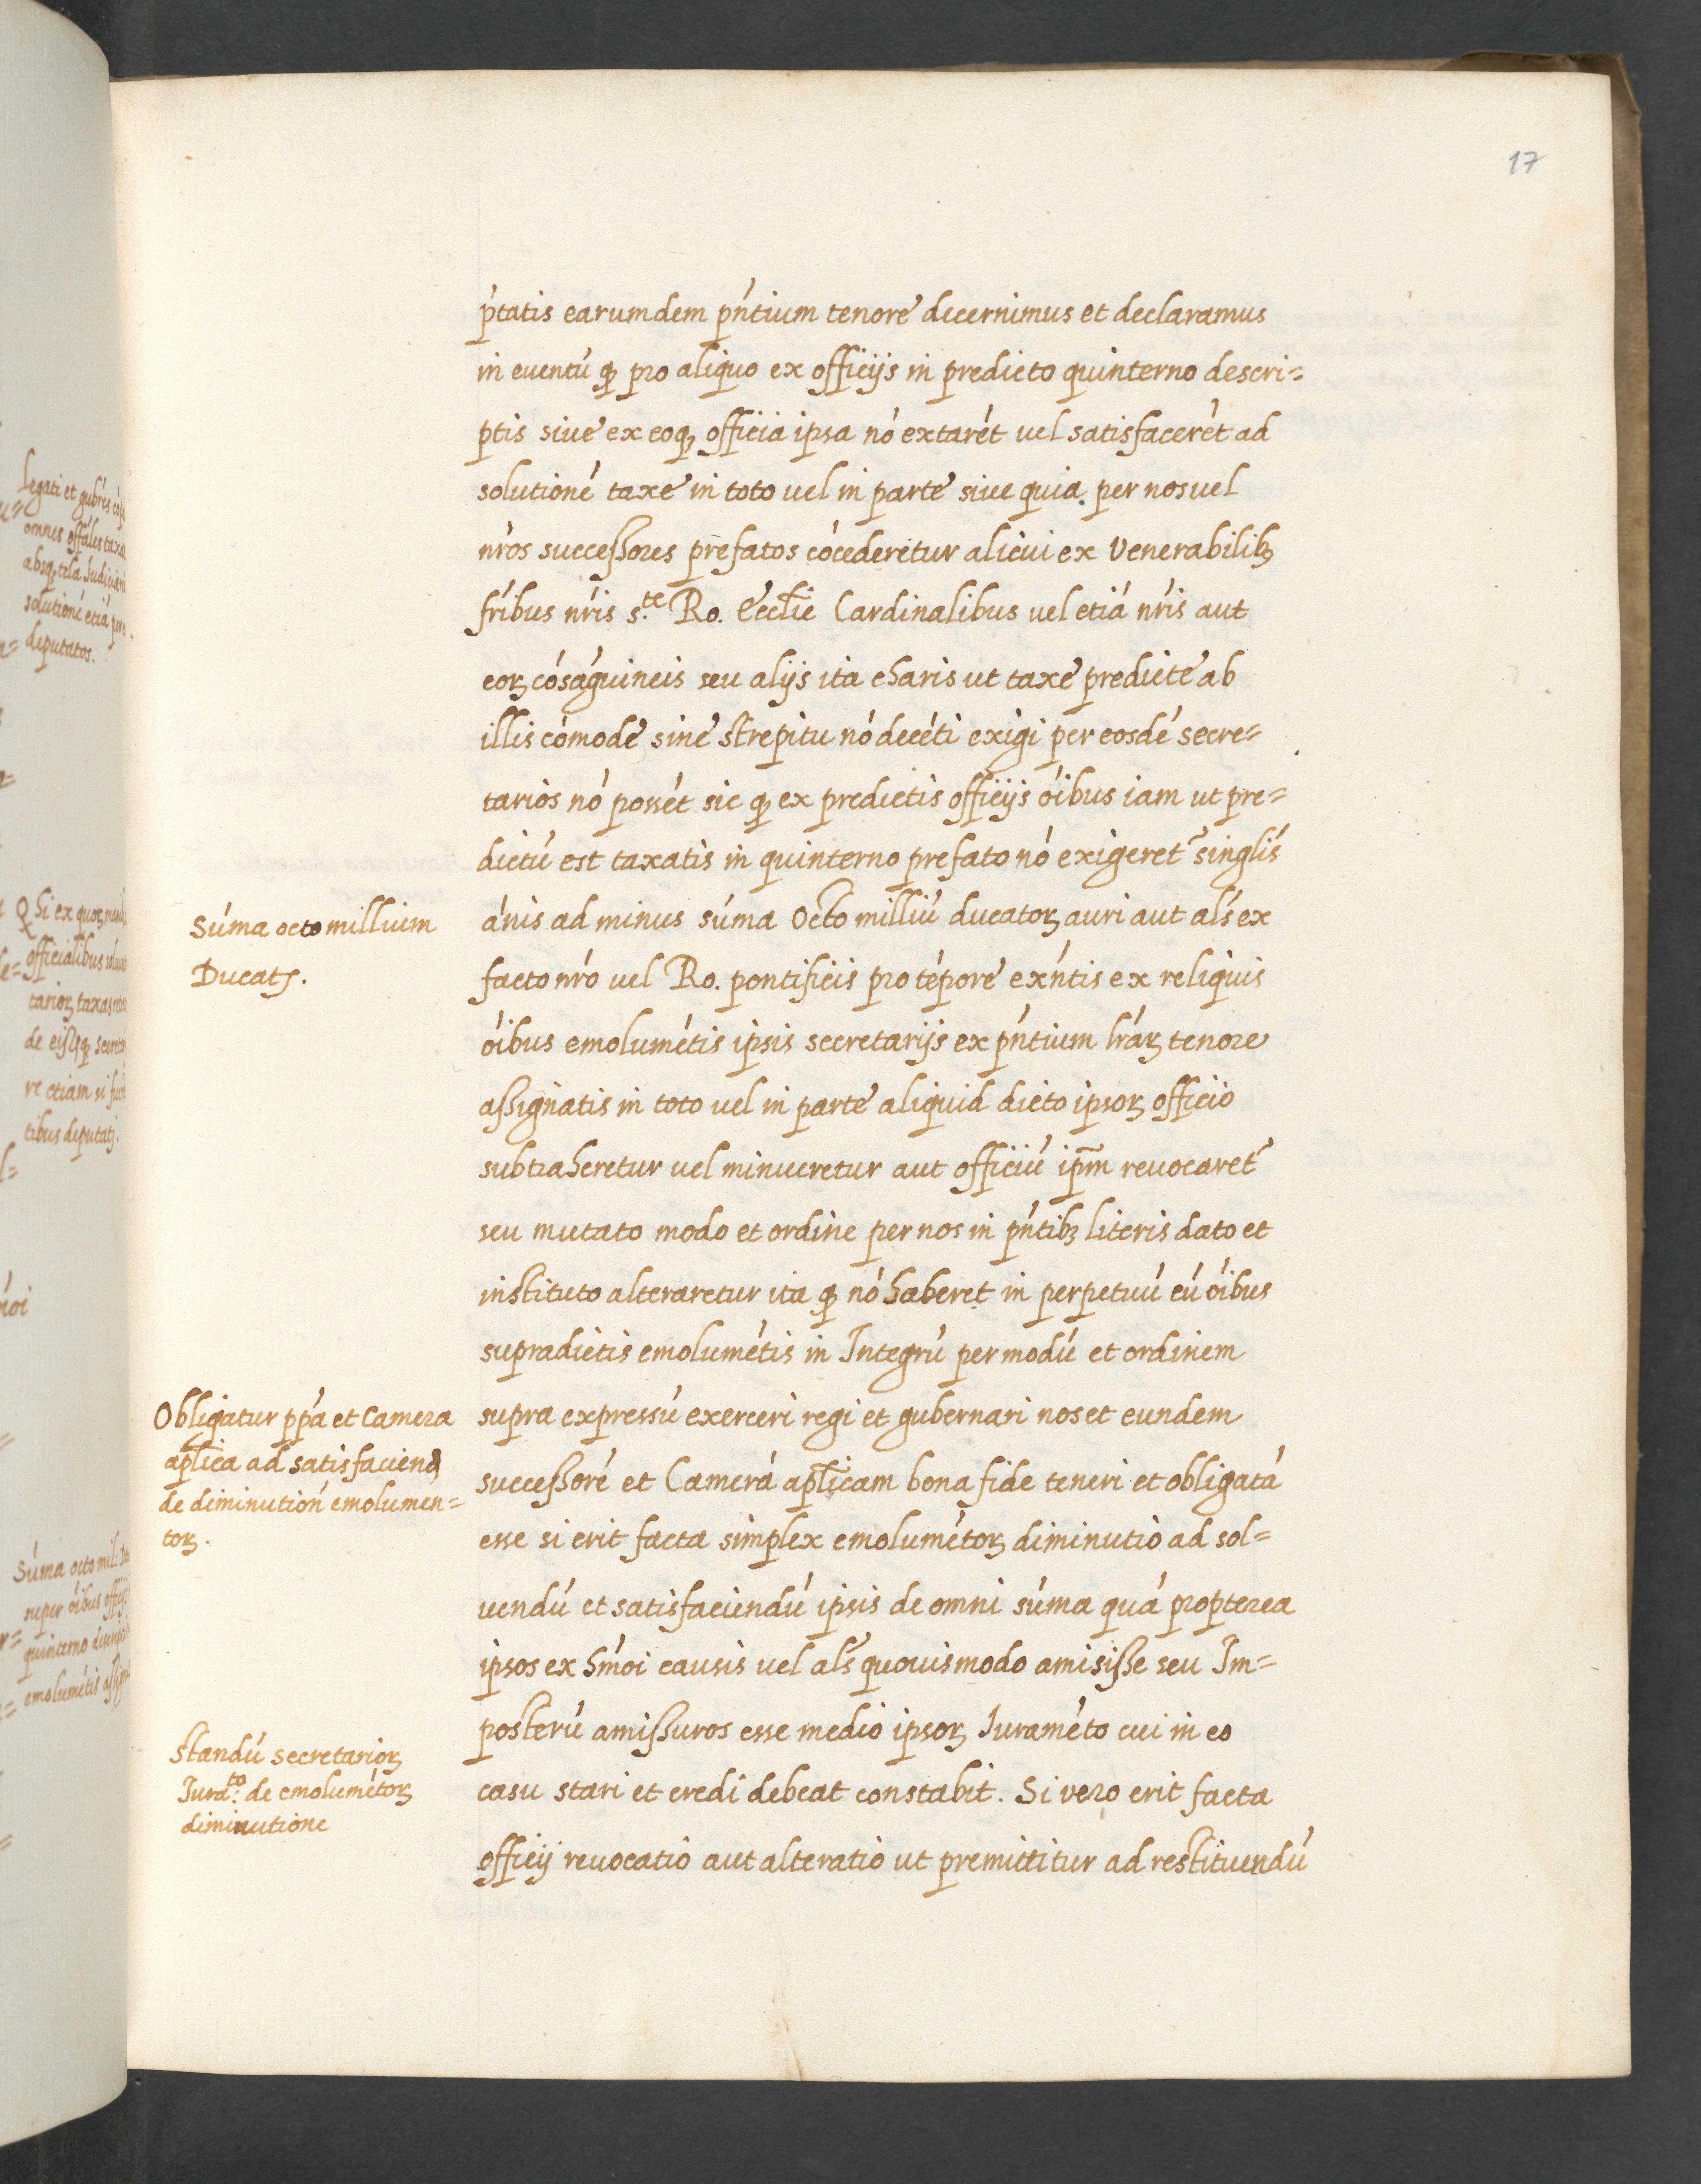 17
p̄tatis earumdem pn̄tium tenore decernimus et declaramus
in euentú ꝙ pro aliquo ex officijs in predicto quinterno descri=
ptis siue ex eoꝙ officia ipsa nó extarét vel satisfacerét ad
solutioné taxe in toto vel in parte siue quia per nos vel
nŕos successores prefatos cócederetur alicui ex Venerabilibꝫ
fŕibus nŕis s.te Ro. Ecclīe Cardinalibus vel etiá nŕis aut
eorꝫ cóságuineis seu alijs ita charis ut taxe predicte ab
illis cómode sine strepitu nó decéti exigi per eosdé secre=
tarios nó possét sic ꝙ ex predictis officijs óibus iam ut pre=
dictú est taxatis in quinterno prefato nó exigeret᷑ singlís
ánis ad minus súma octo milliú ducatorꝫ auri aut alś ex
facto nŕo vel Ro. pontificis pro tépore exńtis ex reliquis
óibus emolumétis ipsis secretarijs ex pńtium lŕarꝫ tenore
assignatis in toto vel in parte aliquid dicto ipsorꝫ officio
subtraheretur vel minueretur aut officiú ip̄m reuocaret᷑
seu mutato modo et ordine per nos in pńtibꝫ literis dato et
instituto alteraretur ita ꝙ nó haberet in perpetuú cú óibus
supradictis emolumétis in Integrú per modú et ordinem
supra expressú exerceri regi et gubernari nos et eundem
successoré et Camerá aplicam bona fide teneri et obligatá
esse si erit facta simplex emolumétorꝫ diminutio ad sol=
uendú et satisfaciendú ipsis de omni súma quá propterea
ipsos ex hḿoi causis vel alś quouismodo amisisse seu Im=
posterú amissuros esse medio ipsorꝫ Juraméto cui in eo
casu stari et credi debeat constabit. Si vero erit facta
officij reuocatio aut alteratio ut premittitur ad restituendú
Súma octo millium
Ducatꝭ.
Obligatur ppá et Camera
aplica ad satisfaciend
de diminutioń emolumen=
torꝫ.
Standú secretariorꝫ
Jurá.to de emolumétorꝫ
diminutione
Legati et gubŕes
omnes offáles
absqꝫ tela Judiciari
solutioné etiá per
deputatos.
Qhi ex quorꝫ
officialibus
tariorꝫ taxas
de eisqꝫ
re etiam si
tibus deputatꝭ.
Súma octo mil.
super óibus officijs
quinterno
emolumétis